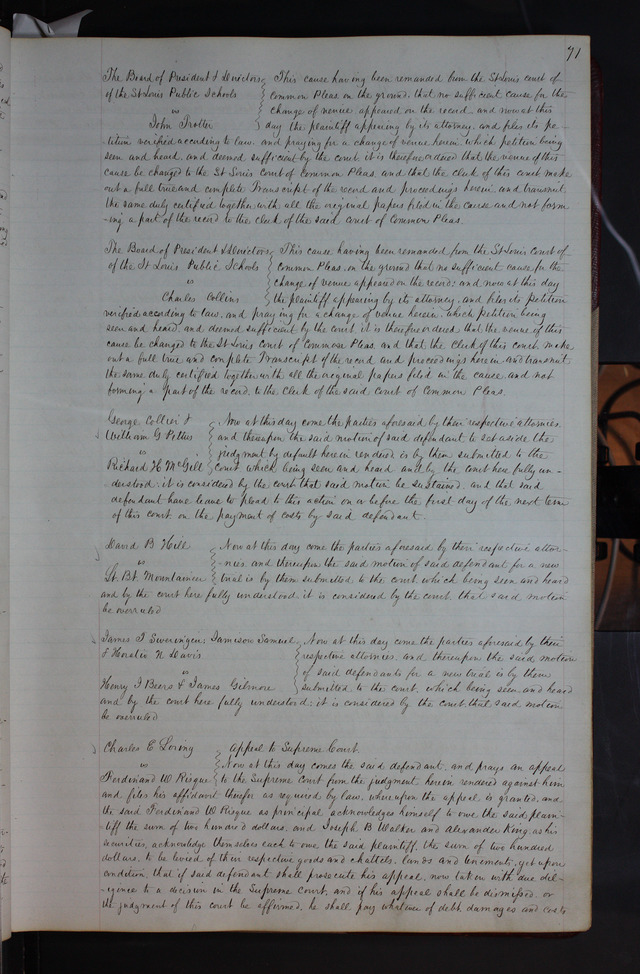 71
The Board of President & Directors } This cause having been remanded from the St Louis court of
of the St Louis Public Schools } Common Pleas on the ground, that no sufficient cause for the
vs } change of venue appeared on the record, and now at this
John Trotter } day the plaintiff appearing by its attorney, and files its pe-
tition verified according to law, and praying for a change of venue herein which petition being
seen and heard, and deemed sufficient by the court, it is therefore ordered that the venue of this
cause be changed to the St Louis Court of Common Pleas, and that the clerk of this court make
out a full true and complete Transcript of the record and proceedings herein, and transmit
the same duly certified together with all the original papers filed in the cause and not form
-ing a part of the record to the clerk of the said court of Common Pleas.
The Board of President & Directors } This cause having been remanded from the St Louis Court of
of the St Louis Public Schools } Common Pleas, on the ground that no sufficient cause for the
vs } change of venue appeared on the record; and now at this day
Charles Collins } the plaintiff appearing by its attorney, and files its petition
verified according to law, and praying for a change of venue herein, which petition being
seen and heard, and deemed sufficient by the court it is therefore ordered, that the venue of this
cause be changed to the St Louis court of Common Pleas, and that the Clerk of this court, make
out a full true and complete Transcript of the record and proceedings herein and transmit
the same duly certified together with all the original papers filed in the cause, and not
forming a part of the record, to the Clerk of the said Court of Common Pleas.
George Collier & } Now at this day come the parties aforesaid by their respective attornies
William G Pettus } and thereupon the said motion of said defendant to set aside the
vs } judgment by default herein rendered is by them submitted to the
Richard H McGill } Court which being seen and heard and by the court here fully un-
derstood; it is considered by the court that said motion be sustained, and that said
defendant have leave to plead to this action on or before the first day of the next term
of this court on the payment of costs by said defendant.
David B Hill } Now at this day come the parties aforesaid by their respective attor-
vs } -nies, and thereupon the said motion of said defendant for a new
St. Bt. Mountaineer } trial is by them submitted to the court, which being seen and heard
and by the court here fully understood; it is considered by the court, that said motion
be overruled
James T Sweringen, Jamison Samuel } Now at this day come the parties aforesaid by their
& Horatio N Davis } respective attornies, and thereupon the said motion
vs } of said defendants for a new trial is by them
Henry I Beers & James Gilmore } submitted to the court, which being seen and heard
and by the court here fully understood; it is considered by the court that said motion
be overruled
Charles E Loring } Appeal to Supreme Court.
vs } Now at this day comes the said defendant, and prays an appeal
Ferdinand W Risque } to the Supreme Court from the judgment herein rendered against him
and files his affidavit therefor as required by law, whereupon the appeal is granted, and
the said Ferdinand W Risque as principal acknowledges himself to owe the said plain-
tiff the sum of two hundred dollars, and Joseph B Walker and Alexander King, as his
securities, acknowledge themselves each to owe the said plaintiff, the sum of two hundred
dollars, to be levied of their respective goods and chattels, lands and tenements, yet upon
condition, that if said defendant shall prosecute his appeal, now taken with due dil-
igence to a decision in the Supreme Court, and if his appeal shall be dismissed, or
the judgment of this court be affirmed, he shall pay whatever of debt, damages and costs